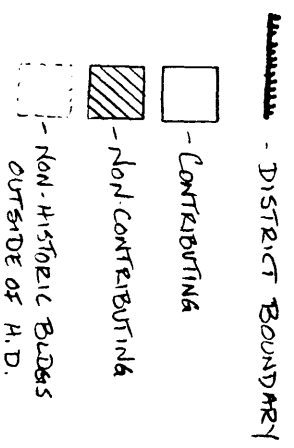 - DISTRICT BOUNDARY
- CONTRIBUTING
- NON-CONTRIBUTING
- NON-HISTORIC BLDGS
OUTSIDE OF H.D.